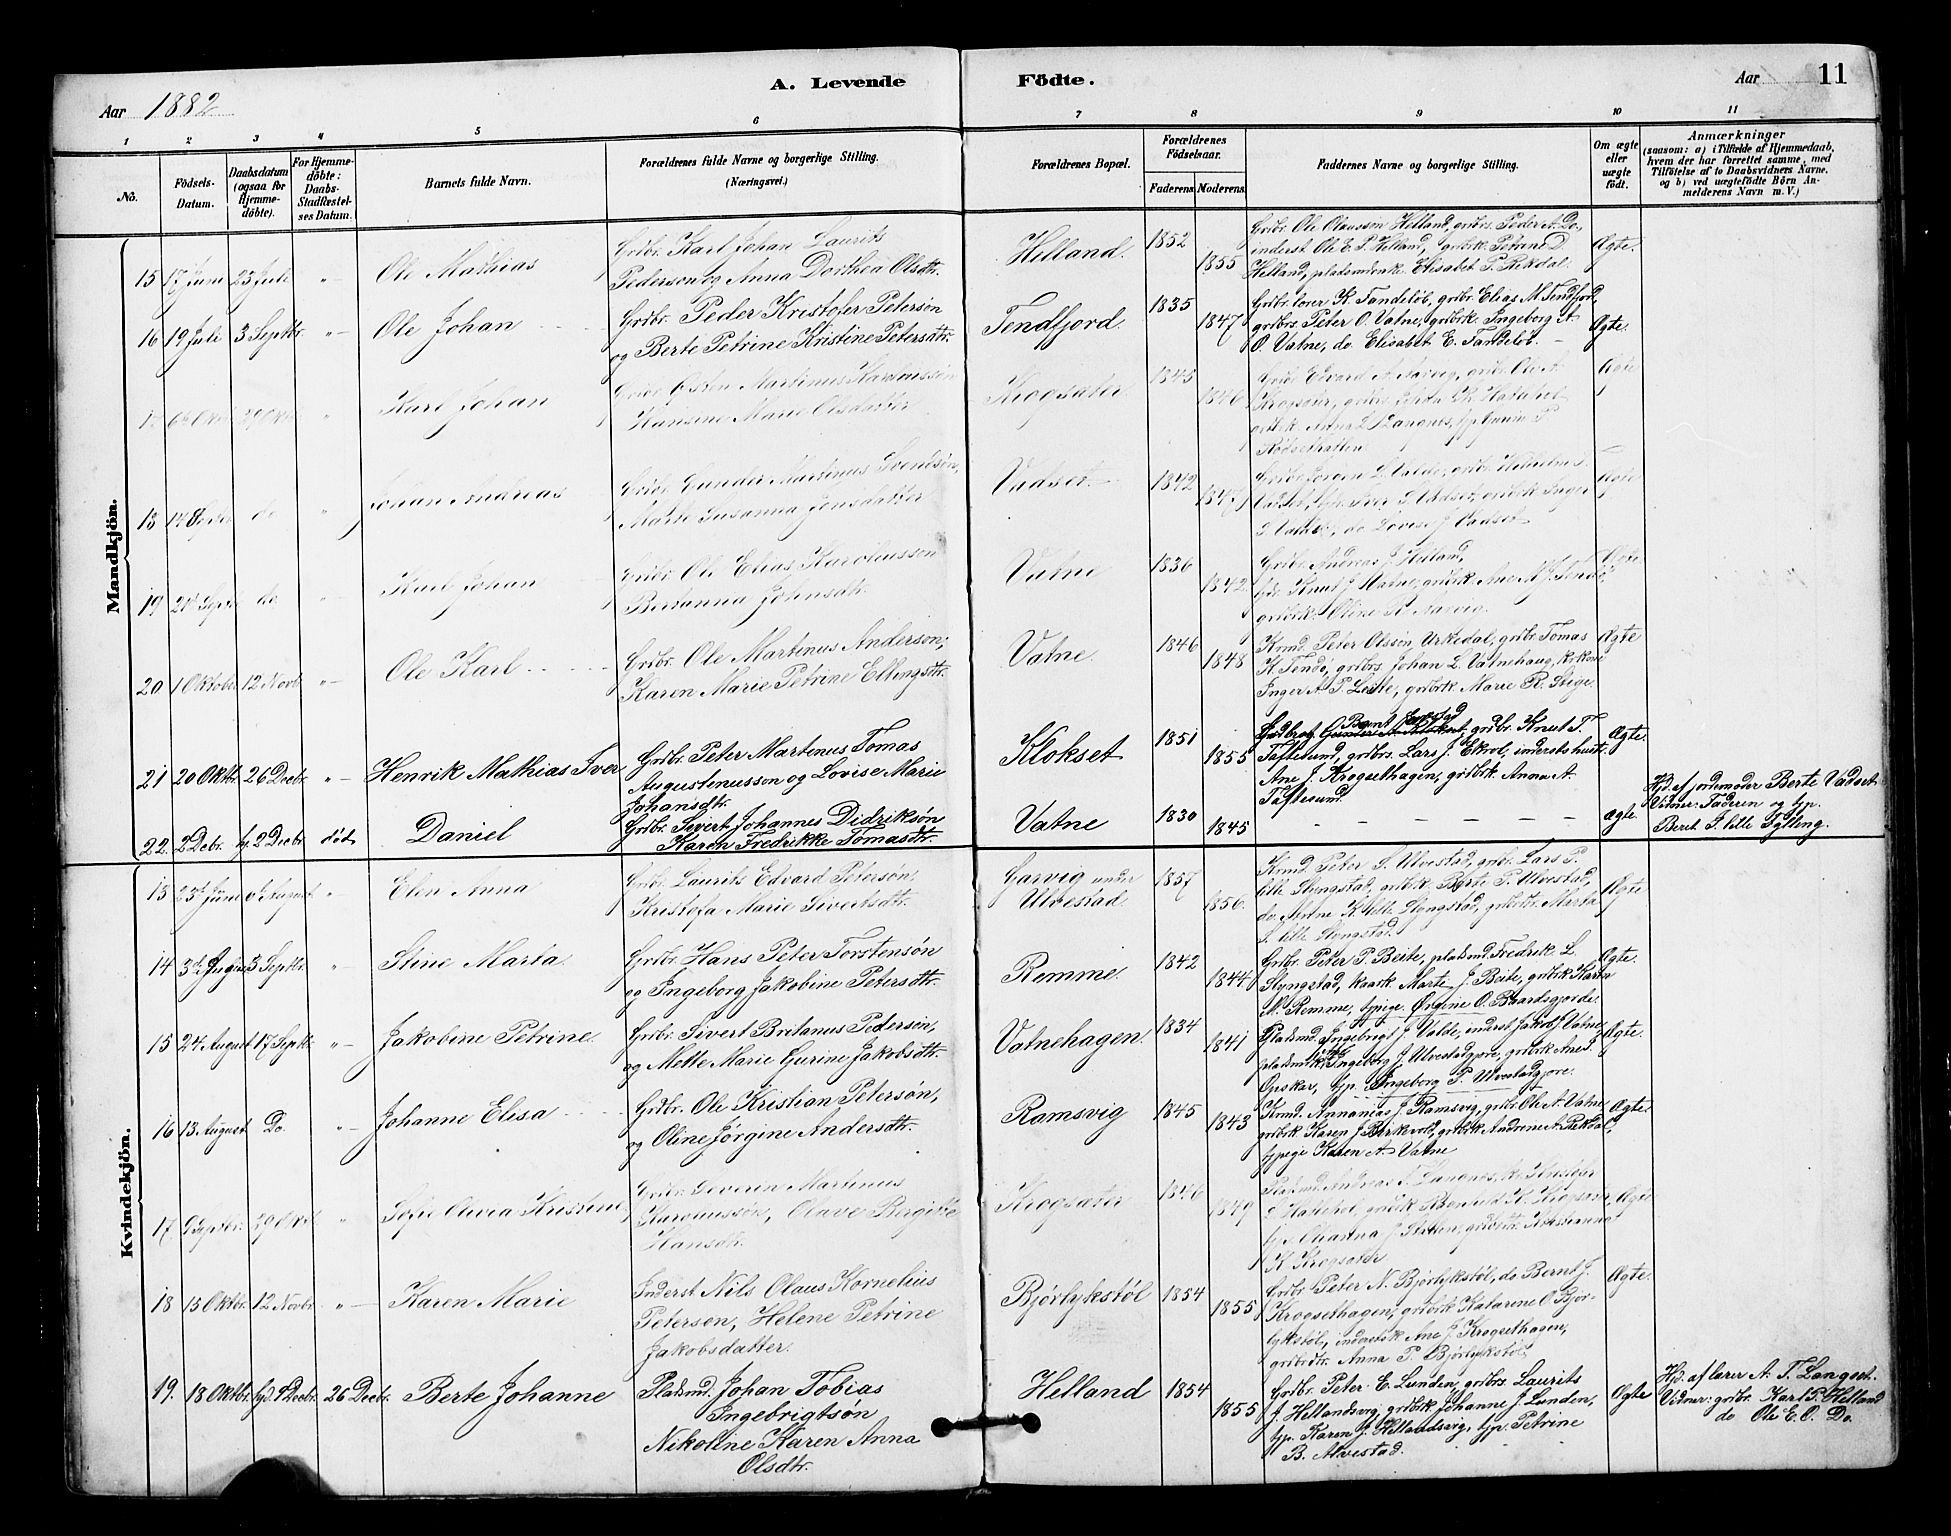 A. Levende
Födte.
Aar 1882
Aar 11
1 2 3 4 5 6 7 8 9 10 11
No.
Födsels-
Datum.
Daabsdatum
(ogsaa for
Hjemme-
döbte).
For Hjemme-
döbte:
Daabs-
Stadfæstel-
ses Datum.
Barnets fulde Navn.
Forældrenes fulde Navne og borgerlige Stilling.
(Næringsvei.)
Forældrenes Bopæl.
Forældrenes
Födselsaar.
Faderens Moderens
Faddernes Navne og borgerlige Stilling.
Om ægte
eller
uægte
födt.
Anmærkninger
(saasom: a) i Tilfælde af Hjemmedaab,
hvem der har forrettet samme, med
Tilföielse af to Daabsvidners Navne,
og b) ved uægtefödte Börn An-
melderens Navn m. V.)
Mandkjön.
15 17 Juni 23 Juli " Ole Mathias
Grdbr. Karl Johan Laurits
Pederson og Anna Dorthea Olsdtr.
Helland. 1852 1855
Grdbr. Ole Olausson Helland, grdbrs. Peder A. Do,
inderst Ole E. P. Helland, grdbrk. Petrine D
Helland, pladsmdenk. Elisabet P. Rekdal.
Ægte.
16 19 Juli 3 Septbr. " Ole Johan
Grdbr. Peder Kristofer Peterson
og Berte Petrine Kristine Petersdtr.
Tendfjord. 1835 1847
Grdbr. lærer K. Tandeløb, grdbr. Elias M. Tendfjord,
grdbrs. Peter O. Vatne, grdbrk. Ingeborg A
O. Vatne, do. Elisabet E. Tandeløb.
Ægte.
Oktbr. 29 Oktbr. " Karl Johan
Grdbr. Østen Martinus Rasmussøn
Hansine Marie Olsdatter
Krogsæter 1845 1846
Grdbr. Edvard A. Aarvig, grdbr. Ole A.
Krogsæter, K. Hatlehol
grdbrk. Anna L. Langnes,
Rødsethatlen
Ægte
18 17 Septbr. do " Johan Andreas
Grdbr. Gunder Martinus Svendsøn,
Marte Susanna Jensdatter
Vadset. 1842 1847
Grdbr. L. Valde, grdbr. Vilhelm S.
Vadset, Iver S. Vadset, grdbrk. Inger
E. Vatne, do Lovise J. Vadset
Ægte
19 Septbr. do " Karl Johan
Grdbr. Ole Elias Karolusson
Beritanna Johnsdtr.
Vatne 1836 1842
Grdbr. Andreas J. Helland,
Knut J. Vatne, grdbrk. Ane M. J. Tendø,
grdbrk. Oline R. Aarvig.
Ægte.
20 1 Oktober 12 Novb. " Ole Karl
Grdbr. Ole Martinus Anderson,
Karen Marie Petrine Ellingsdtr.
Vatne. 1846 1848
Krmd. Peter Olsson Urkedal, grdbr. Tomas
K. Tendø, grdbrs. Johan L. Vatnehaug,
Inger A. P. Leite, grdbrk. Marie R. Stige.
Ægte
21 20 Oktbr. 26 Decbr. " Henrik Mathias Iver
Grdbr. Peter Martinus Tomas
Augustinusson og Lovise Marie
Johansdtr.
Klokset 1851 1855
Bernt
grdbr. Knut T.
Taftesund, grdbrs. Lars J. Ekrol, inderstshust.
Ane J. Krogsethagen, grdbrk. Anna A.
Taftesund.
Ægte.
22. 2 Decbr. hj. 2 Decbr. død Daniel
Grdbr. Sivert Johannes Didriksøn
Karen Fredrikke Tomasdtr.
Vatne 1830 1845 – – – – – –
ægte.
Hjd. af jordemoder Berte Vadset
Vitner: Faderen og tjp.
Beret S. lille Tylling.
Kvindekjön.
13 23de Juni August " Elen Anna
Grdbr. Laurits Edvard Petersøn,
Kristofa Marie Sivertsdtr.
Gjærvig under
Ulvestad. 1857 1856.
Krmd. Peter S. Ulvestad, grdbr. Lars P.
lille Slyngstad, grdbrk. Berte P. Ulvestad,
do. Anne K. lille Slyngstad, grdbrdtr. Marta
S. lille Slyngstad.
Ægte
14 3de August 3 Septbr. " Stine Marta
Grdbr. Hans Peter Torstensøn
og Ingeborg Jakobine Petersdtr.
Remme 1842 1844
Grdbr. Peter P. Beite, pladsmd. Fredrik L.
Slyngstad, kaark. Marte J. Beite, grdbrk. Karen
M. Remme, tjpige. Ørgine O. Baardsgjorde.
Ægte.
15 24 August 17 Septbr. " Jakobine Petrine
Grdbr. Sivert Britanus Pedersøn,
og Mette Marie Gurine Jakobsdtr.
Vatnehagen. 1834 1841
Pladsmd. Ingebrigt J. Valde, inderst Jakob J. Vatne,
pladsmdk. Ingeborg J. Ulvestadgjøre, grdbrk. Ane S.
Opskar, tjp. Ingeborg P. Ulvestadgjøre.
Ægte.
16 13. August Do. " Johanne Elisa
Grdbr. Ole Kristian Petersøn,
og Oline Jørgine Andersdtr.
Ramsvig 1845 1843
Krmd. Annanias J. Ramsvig, grdbr. Ole A. Vatne,
grdbrk. Karen J. Birkevold, grdbrk. Andrine A. Rekdal,
tjpige Karen A. Vatne
Ægte.
17. 9 Septbr. 29 Oktbr. " Sofie Olivia Kristine
Grdbr. Severin Martinus
Rasmussøn, Olave Birgitte
Hansdtr.
Krogsæter 1846 1849
Pladsmd. Andreas T. Langnes,
Hatlehol, grdbrk. K. Krogsæter,
J. Slatlem, grdbrdtr. Kristianna
K. Krogsæter
Ægte
18 15 Oktbr. 12 Novbr. " Karen Marie
Inderst Nils Olaus Kornelius
Peterson, Helene Petrine
Jakobsdatter.
Bjørlykstøl 1854 1855
Grdbr. Peter N. Bjørlykstøl, do Bernt J.
Krogsethagen, grdbrk. Katarine O. Bjør-
lykstøl, inderstk. Ane J. Krogsethagen,
grdbrdtr. Anna P. Bjørlykstøl.
Ægte.
19. 18 Oktbr. hjd. 9 Decbr. 26 Decbr. Berte Johanne
Pladsmd. Johan Tobias
Ingebrigtsøn
Nikoline Karen Anna
Olsdtr.
Helland 1854 1855
Grdbr. Peter E. Lunden, grdbrs. Laurits
J. Hellandsvig, grdbrk. Johanne J. Lunden,
tjp. Karen J. Hellandsvig, tjp. Petrine
B. Alvestad.
Ægte
Hjd. af lærer A. T. Langset.
Vidner: grdbr. Karl P. Helland
do Ole E. O. Do.